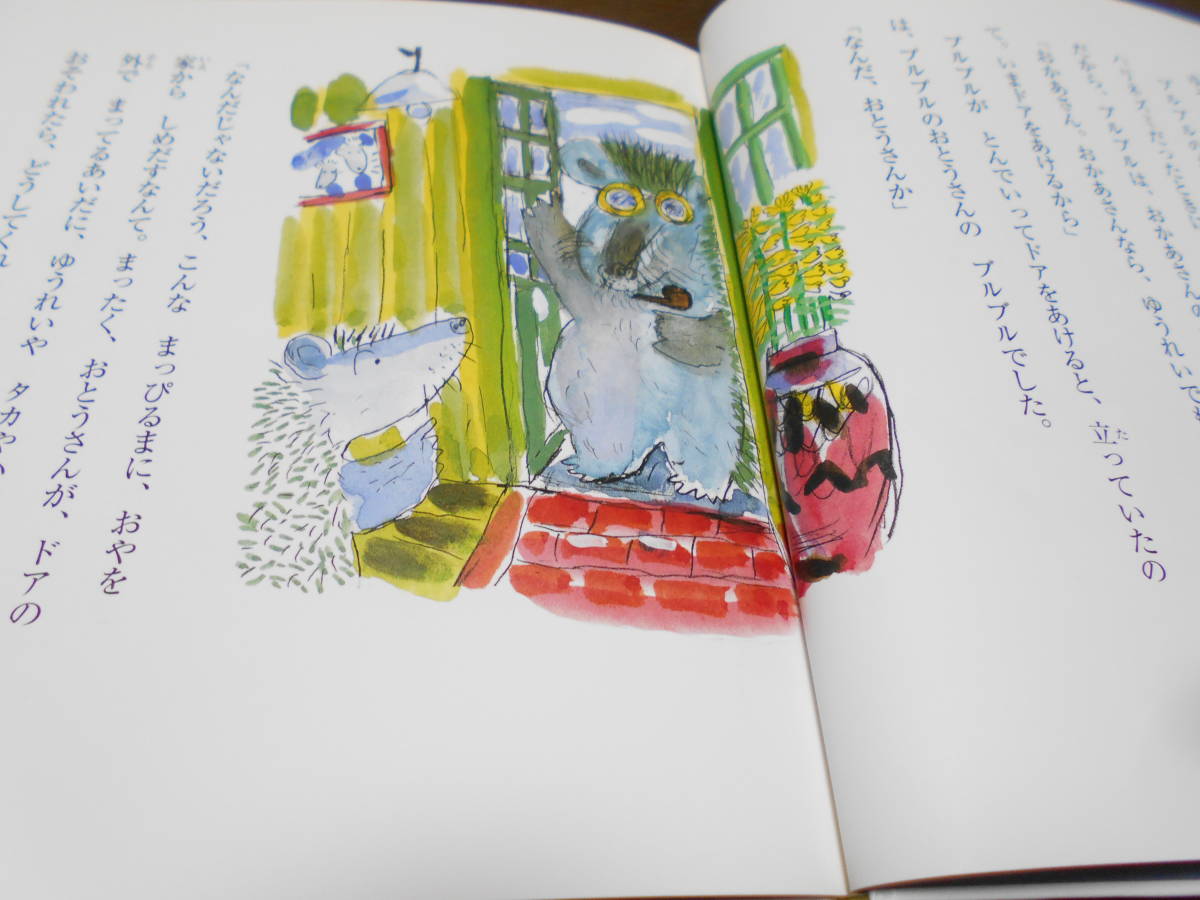 「おかあさん。おかあさんなら、ゆうれい
て、いまドアをあけるから」
プルプルが とんでいってドアをあけると、立っていたの
は、プルプルのおとうさんの ブルブルでした。
「なんだ、おとうさんか」
「なんだじゃないだろう、こんな まっぴるまに、おやを
家から しめだすなんて。まったく、おとうさんが、ドアの
外で まってるあいだに、ゆうれいや タカや
おそわれたら、どうしてくれ